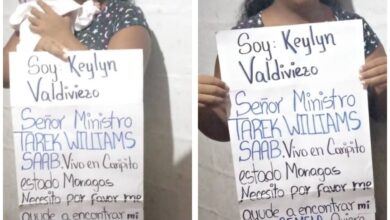 Soy: Keylyn
Valdiviezo
Señor Ministro
TAREK WILLIAMS
SAAB. Vivo en Caripito
estado Monagas
Necesito por favor me
ayude a encontrar mi
Soy: Keylyn
Valdiviezo
Señor Ministro
TAREK WILLIAMS
SAAB. Vivo en Caripito
estado Monagas
Necesito por favor me
ayude a encontrar mi